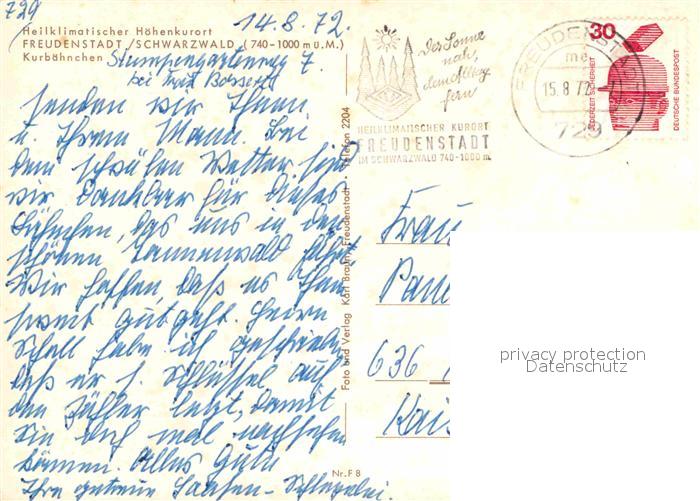 729
14.8.72.
Heilklimatischer Höhenkurort
FREUDENSTADT/SCHWARZWALD (740-1000 m ü.M.)
Kurbähnchen
Stumpengartenweg 7
bei Frau
senden wir Ihnen
u. Ihrem Mann. Bei
dem schwülen Wetter sind
wir dankbar für dieses
Bähnchen, das uns in den
schönen Tannenwald fährt
Wir hoffen, daß es Ihnen
soweit gut geht. Herrn
Scholl habe ich geschrieben
daß er s. Schlüssel auf
den Zähler legt, damit
Sie doch mal nachsehen
können. Alles Gute
Ihre getreue
Foto und Verlag Karl Braun, Freudenstadt · Telefon 2204
Nr. F 8
Der Sonne
nah,
dem Alltag
fern
HEILKLIMATISCHER KURORT
FREUDENSTADT
IM SCHWARZWALD 740-1000 m.
FREUDENSTADT
me
15.8.72
729
30
JEDERZEIT SICHERHEIT
DEUTSCHE BUNDESPOST
Frau
636
privacy protection
Datenschutz